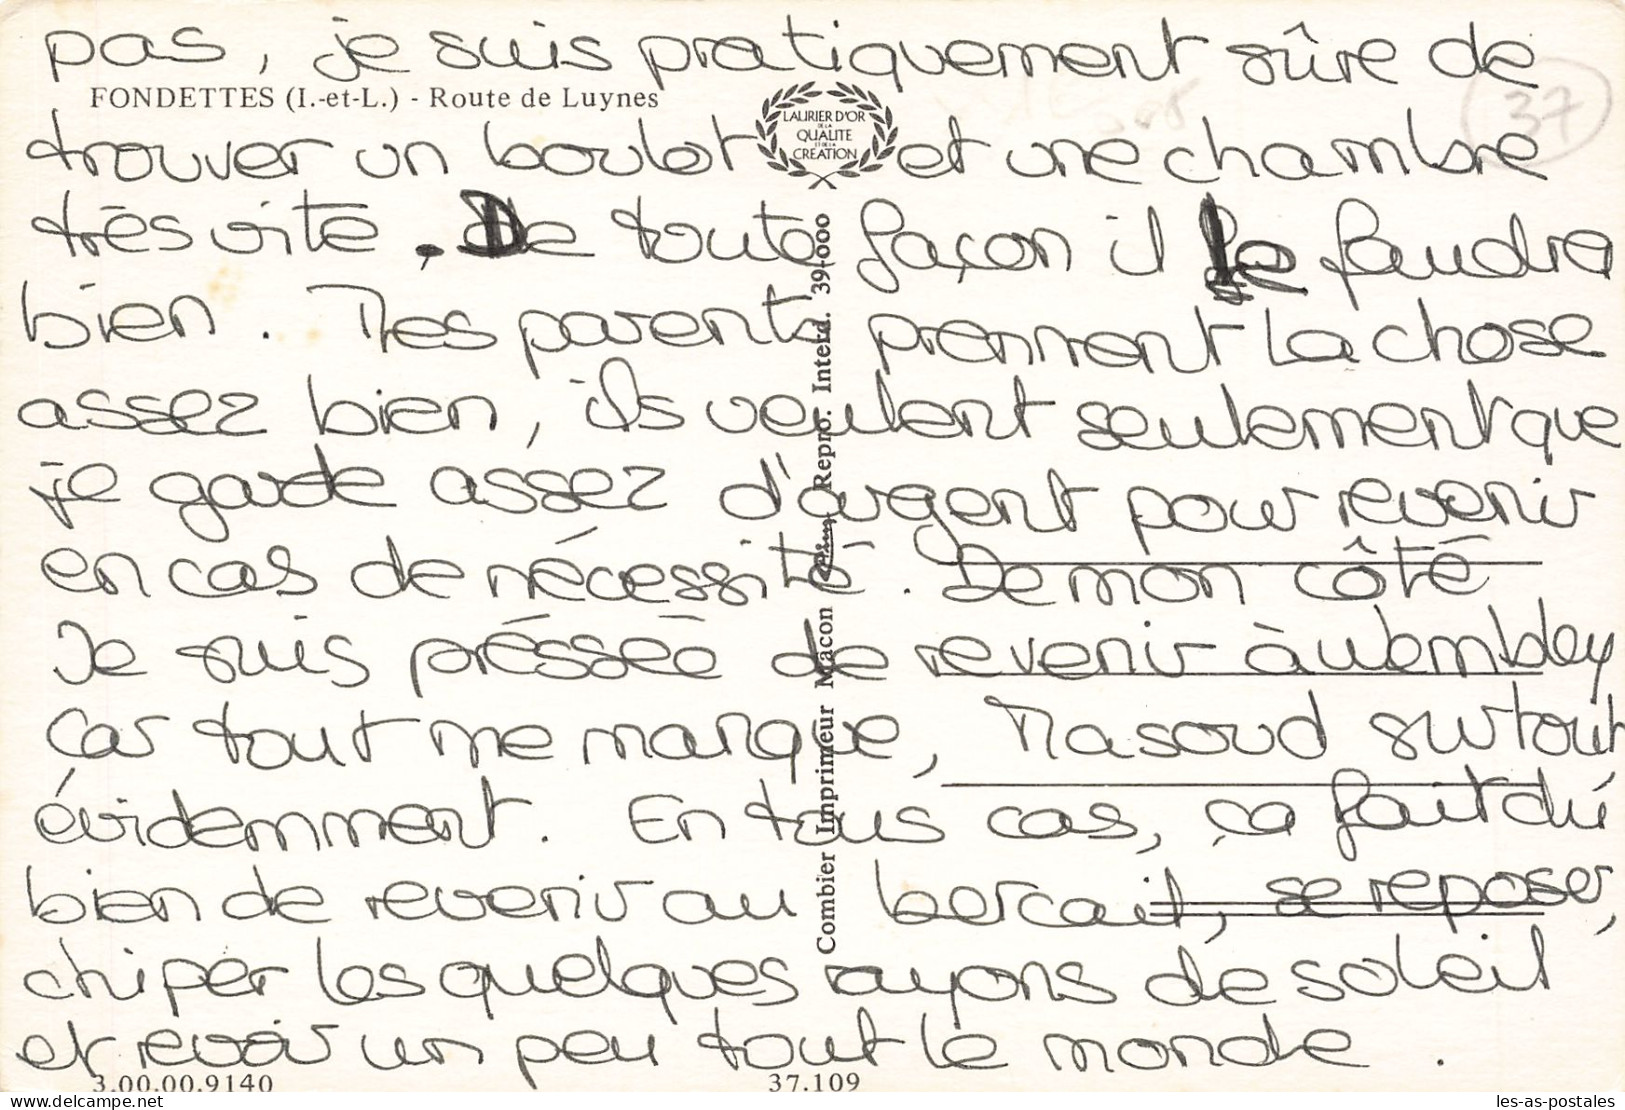 pas, je suis pratiquement sûre de
FONDETTES (I.-et-L.) - Route de Luynes
37
LAURIER D'OR
DE LA
QUALITE
ET DE LA
CREATION
trouver un boulot et une chambre
très vite. De toute façon il le faudra
bien. Mes parents prennent la chose
assez bien, ils veulent seulement que
je garde assez d'argent pour revenir
en cas de nécessité. De mon côté
Je suis préssée de revenir à Wembley
car tout me manque, Masoud surtout
évidemment. En tous cas, ça fait dû
bien de revenir au bercait, se reposer,
chiper les quelques rayons de soleil
et revoir un peu tout le monde.
Combier Imprimeur Macon Repro. Interd. 39-000
3.00.00.9140
37.109
les-as-postales
Delcampe.net